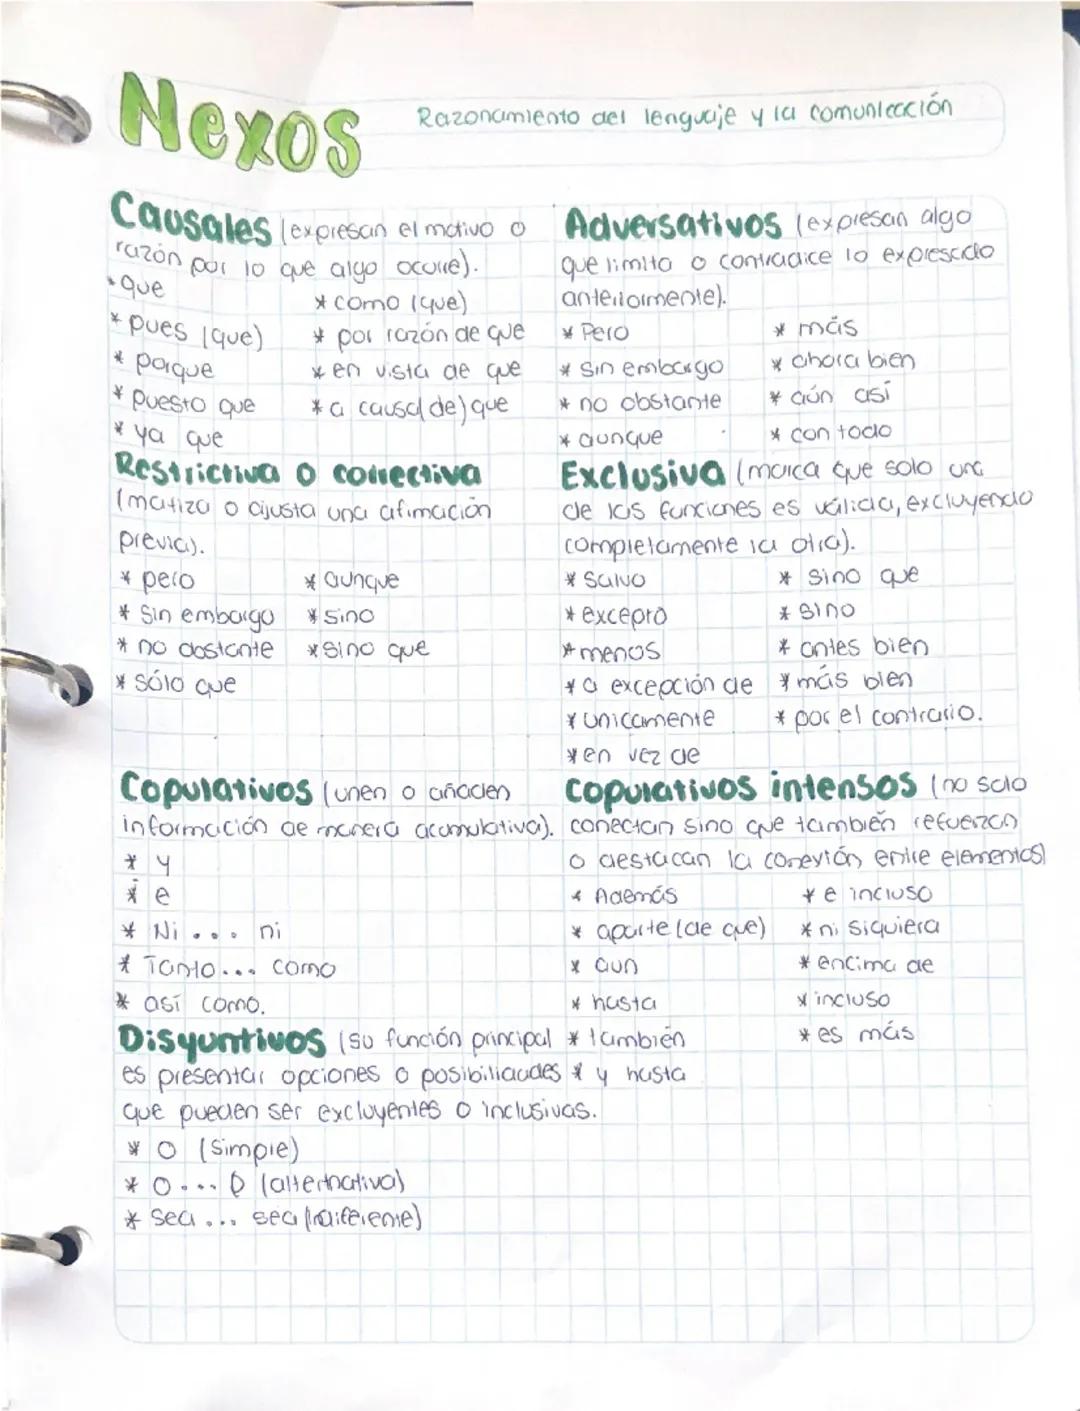 Nexos
Razonamiento del lenguaje y la comunicación
Causales (expresan el motivo o
razón por lo que algo ocurre).
* que
* pues (que)
* porque
* puesto que
* ya que
* como (que)
* por razón de que
* en vista de que
* a causa(de) que
Adversativos (expresan algo
que limita o contradice lo expresado
anteriormente).
* Pero
* sin embargo
* no obstante
* aunque
* más
* ahora bien
* aún así
* con todo
Restrictiva o correctiva
(matiza o ajusta una afimación
previa).
* pero
* sin embargo
* no obstante
* sólo que
* aunque
* sino
* sino que
Exclusiva (marca que solo una
de las funciones es válida, excluyendo
completamente la otra).
* salvo
* excepto
* menos
* a excepción de
* unicamente
* en vez de
* sino que
* sino
* antes bien
* más bien
* por el contrario.
Copulativos (unen o añaden
información de manera acumulativa).
* y
* e
* Ni ... ni
* Tanto... como
* así como.
Copulativos intensos (no solo
conectan sino que también refuerzan
o destacan la conexión entre elementos)
* Además
* aparte (de que)
* aun
* hasta
* también
* y hasta
* e incluso
* ni siquiera
* encima de
* incluso
* es más
Disyuntivos (su función principal
es presentar opciones o posibiliaudes
que pueden ser excluyentes o inclusivas.
* o (simple)
* o.... o (alternativa)
* sea ... sea (indiferente)